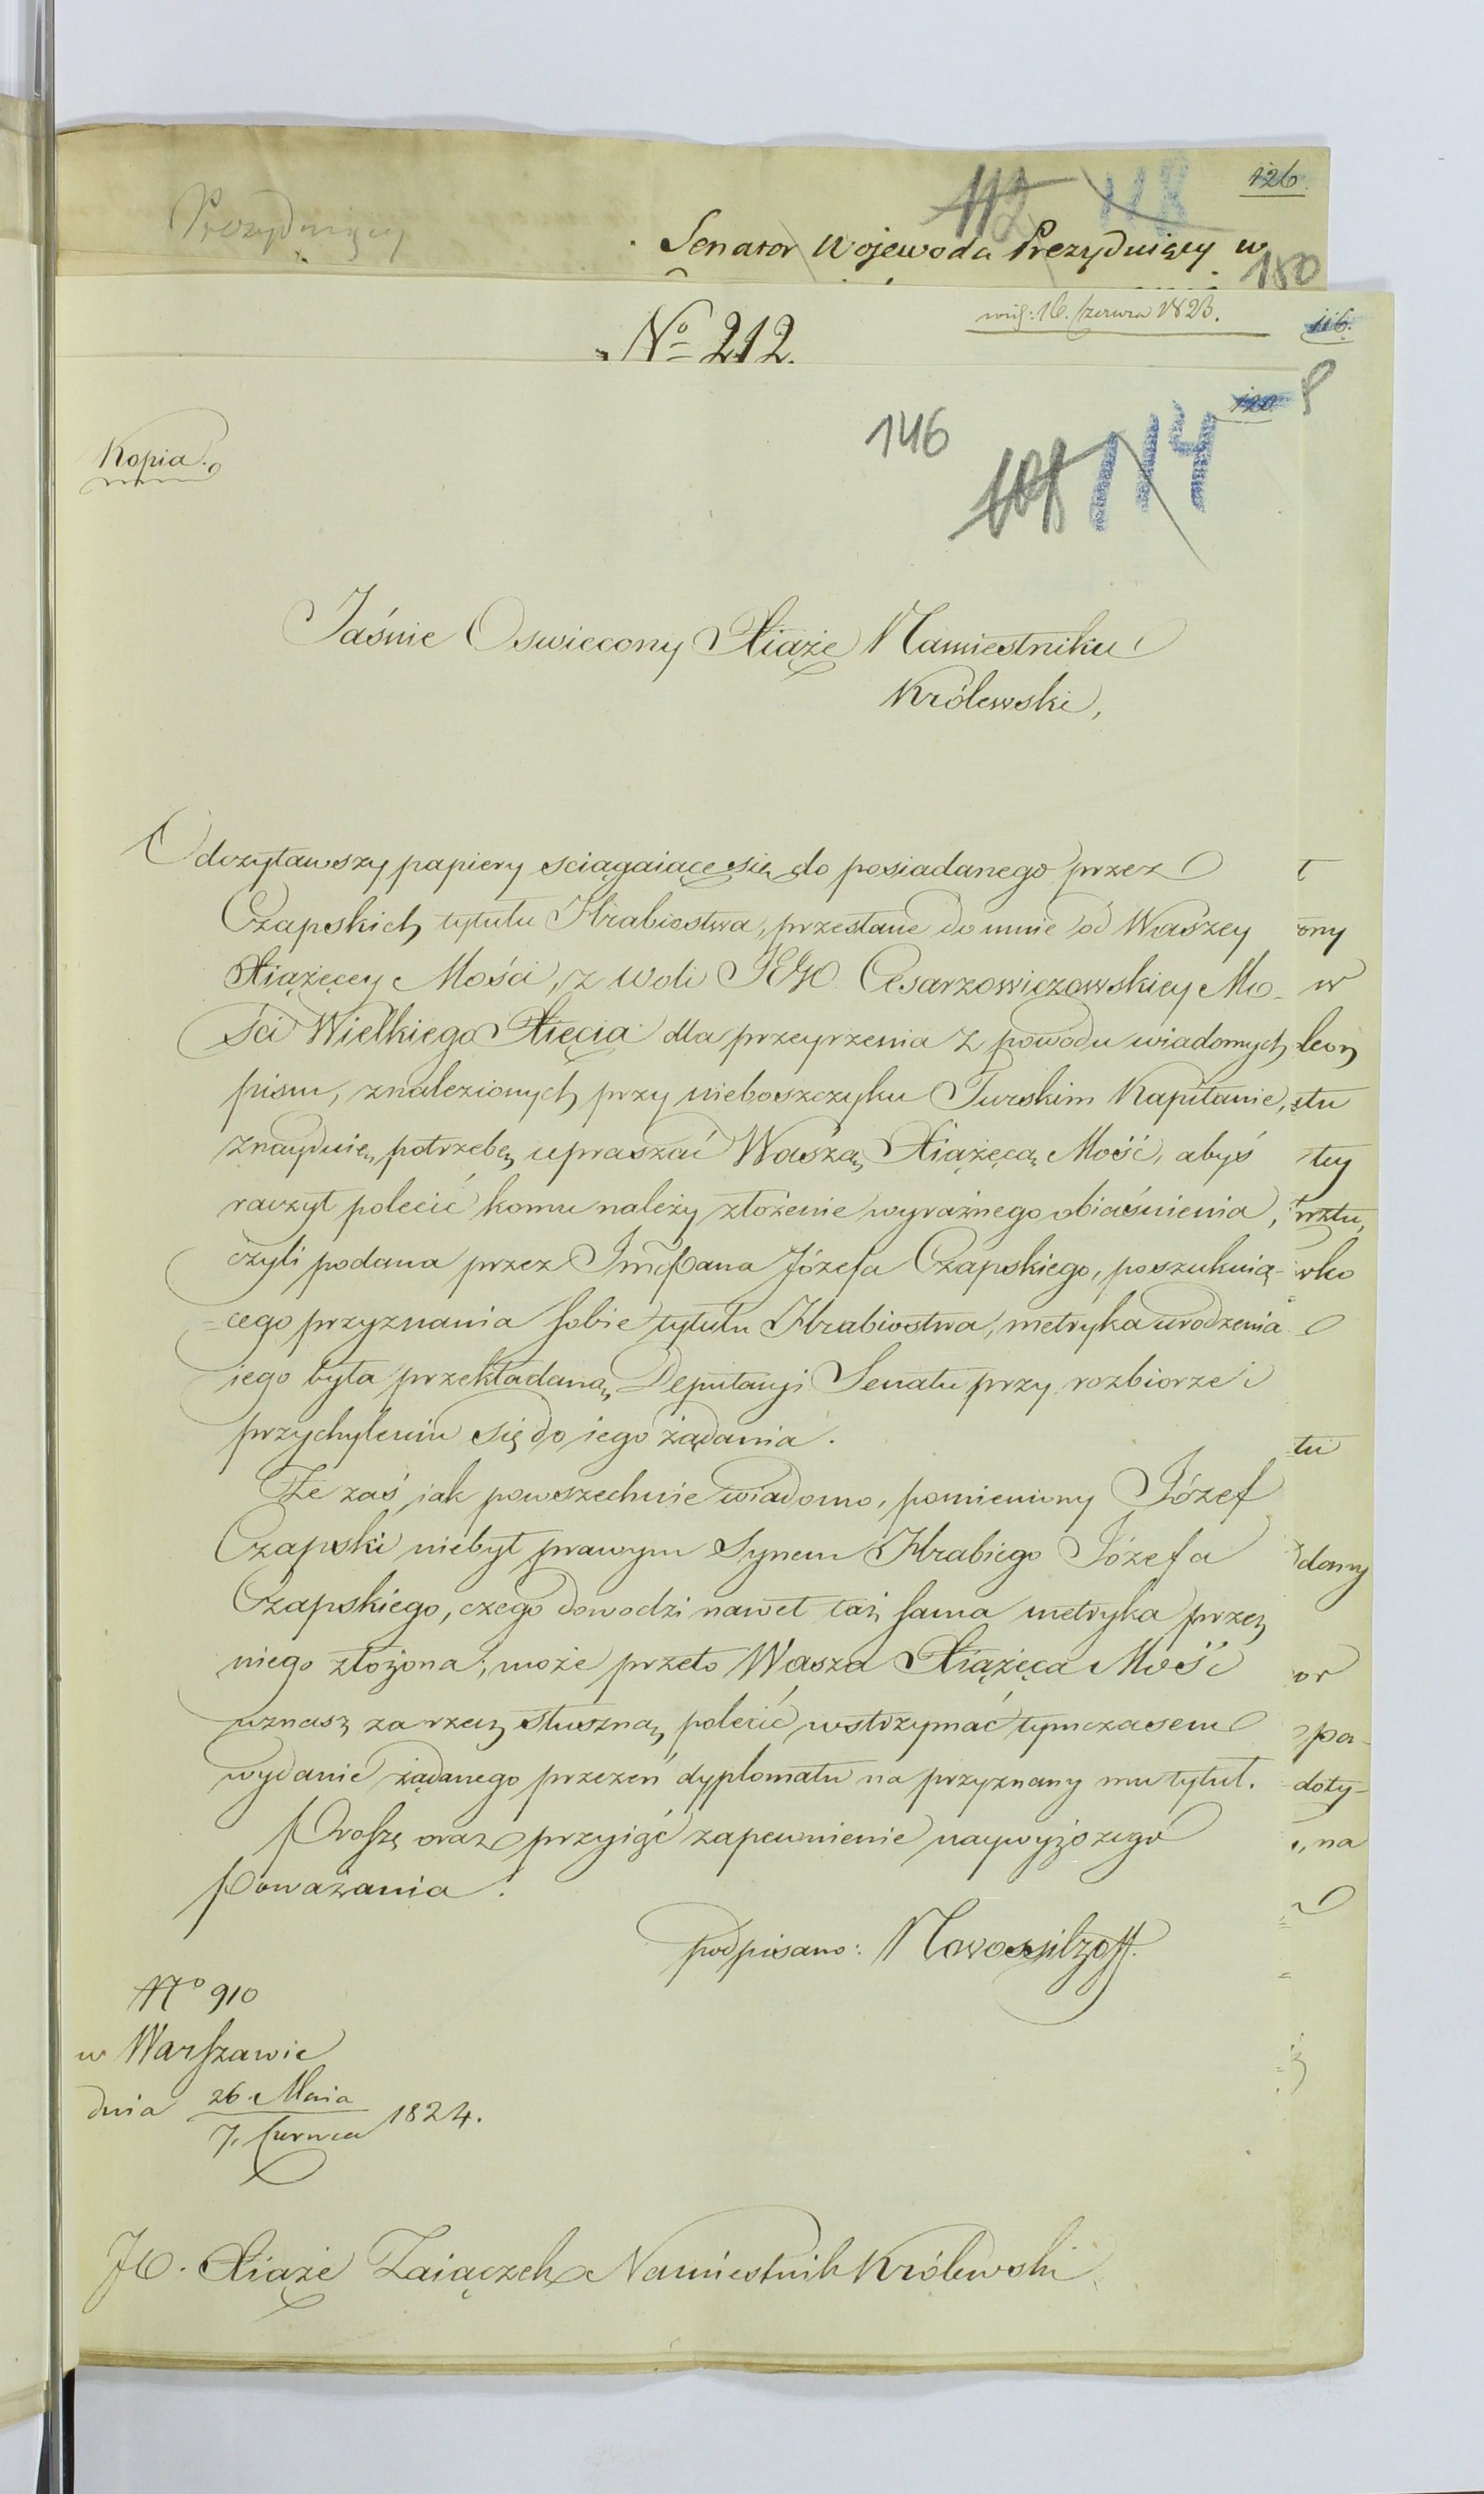 126.
112 118
Prezyduiący
Senator Wojewoda Prezyduiący w
180
16. Czerwca 1823.
116.
No 212.
120
146
114
Kopia.
Jaśnie Oswiecony Xiąże Namiestniku
Królewski,
Odczytawszy papiery sciągaiące się do posiadanego przez
Czapskich tytułu Hrabiostwa, przesłane do mnie od Waszey
ony
Xiążęcey Mości, z woli JEGO Cesarzowiczowskiey Mo-
w
ści Wielkiego Xięcia dla przeyrzenia z powodu wiadomych
pism, znalezionych przy nieboszczyku Turskim Kapitanie,
stu
znayduię potrzebę upraszać Waszą Xiążęcą Mość, abyś
tey
raczył polecić komu należy złożenie wyraźnego obiaśnienia,
czyli podana przez Imć Pana Józefa Czapskiego, poszukuią-
wko
=cego przyznania sobie tytułu Hrabiostwa, metryka urodzenia
iego była przekładaną Deputacyi Senatu przy rozbiorze i
przychyleniu się do iego żądania.
tu
Że zaś jak powszechnie wiadomo, pomieniony Józef
Czapski niebył prawym Synem Hrabiego Józefa
domy
Czapskiego, czego dowodzi nawet taż sama metryka przez
niego złożona; może przeto Wasza Xiążęca Mość
or
uznasz za rzecz słuszną, polecić wstrzymać tymczasem
spa-
wydanie żądanego przezeń dyplomatu na przyznany mu tytuł.
doty-
Proszę oraz przyiąć zapewnienie naywyższego
, na
Poważania.
podpisano: Nowossilzoff.
No 910
w Warszawie
dnia 26. Maia
7. Czerwca 1824.
JO. Xiąże Zaiączek Namiestnik Królewski